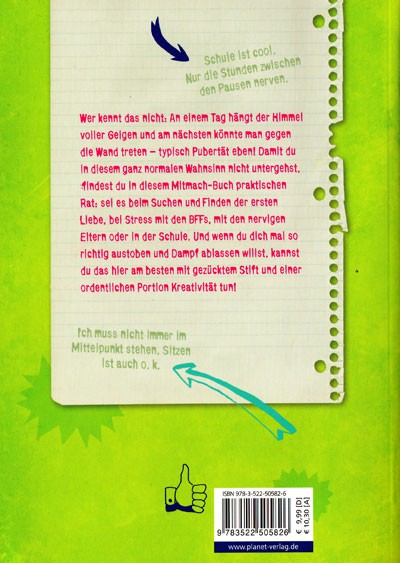 Schule ist cool.
Nur die Stunden zwischen
den Pausen nerven.
Wer kennt das nicht: An einem Tag hängt der Himmel
voller Geigen und am nächsten könnte man gegen
die Wand treten – typisch Pubertät eben! Damit du
in diesem ganz normalen Wahnsinn nicht untergehst,
findest du in diesem Mitmach-Buch praktischen
Rat: sei es beim Suchen und Finden der ersten
Liebe, bei Stress mit den BFFs, mit den nervigen
Eltern oder in der Schule. Und wenn du dich mal so
richtig austoben und Dampf ablassen willst, kannst
du das hier am besten mit gezücktem Stift und einer
ordentlichen Portion Kreativität tun!
Ich muss nicht immer im
Mittelpunkt stehen. Sitzen
ist auch o. k.
ISBN 978-3-522-50582-6
9 783522 505826
€ 9,99 [D]
€ 10,30 [A]
www.planet-verlag.de